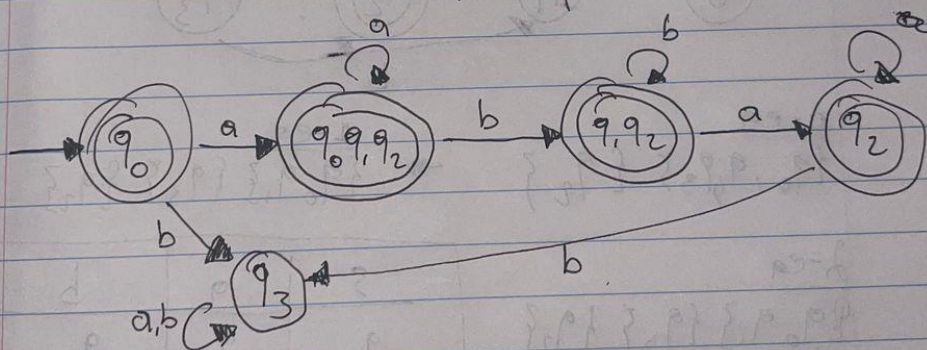 a b
q0 a q0q1q2 b q1q2 a q2
b b
q3
a,b